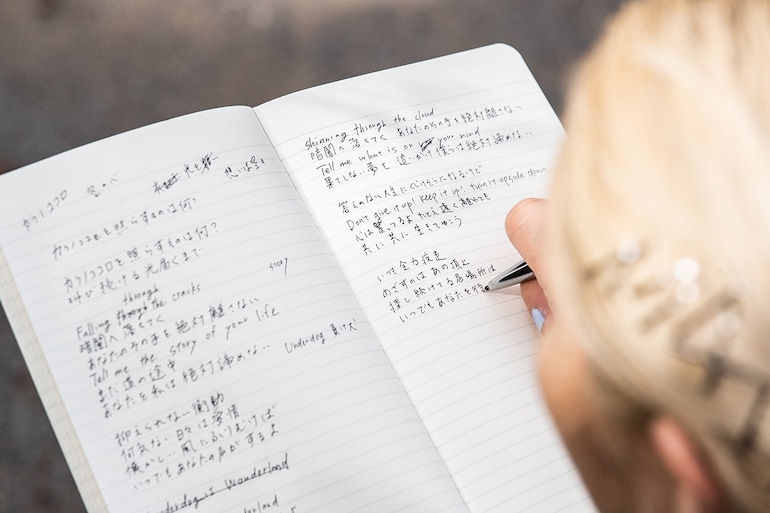 カケノココロ
カケノココロを照らすものは何?
カケノココロを照らすものは何?
叫び続ける 光届くまで
story
through
Falling through the cracks
暗闇へ落ちてく
あなたのその手を絶対離さない
Tell me the story of your life
まだ道の途中
あなたを私は絶対諦めない
Underdog 負け犬
抑えられない衝動
何気ない日々は愛情
懐かしい風に
いつでもあなたの声がするよ
Underdog is Wonderland
shinning through the cloud
暗闇へ落ちてく あなたのその手を絶対離さない
Tell me what is on your mind
果てしない夢を追いかけて僕らは絶対諦めない
答えのない人生に
Don't give it up! Keep it up! turn it upside down
心は繋ってるよ たとえ遠く離れても
共に共に生きてゆこう
いつも全力疾走
めざすのはあの頂上
探し続けてる居場所は
いつでもあなたを待